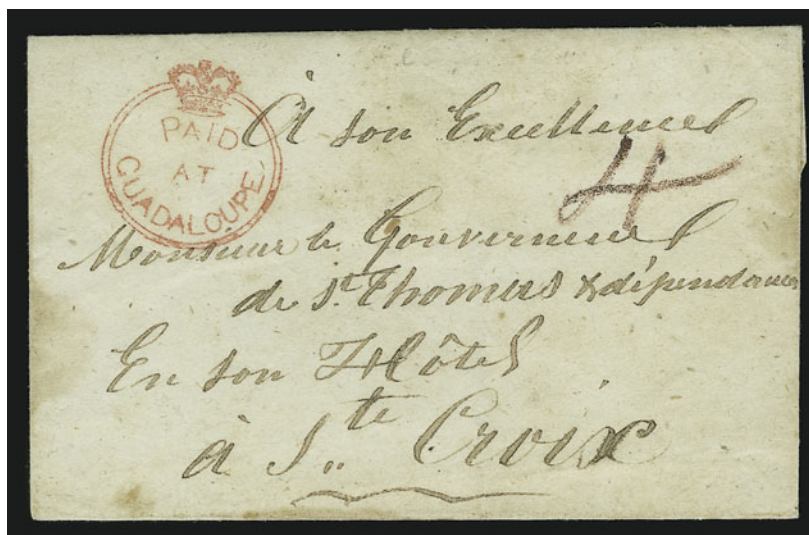 PAID
AT
GUADALOUPE
À son Excellence
4
Monsieur le Gouverneur
de St. Thomas & dépendances
En son Hôtel
à Ste Croix